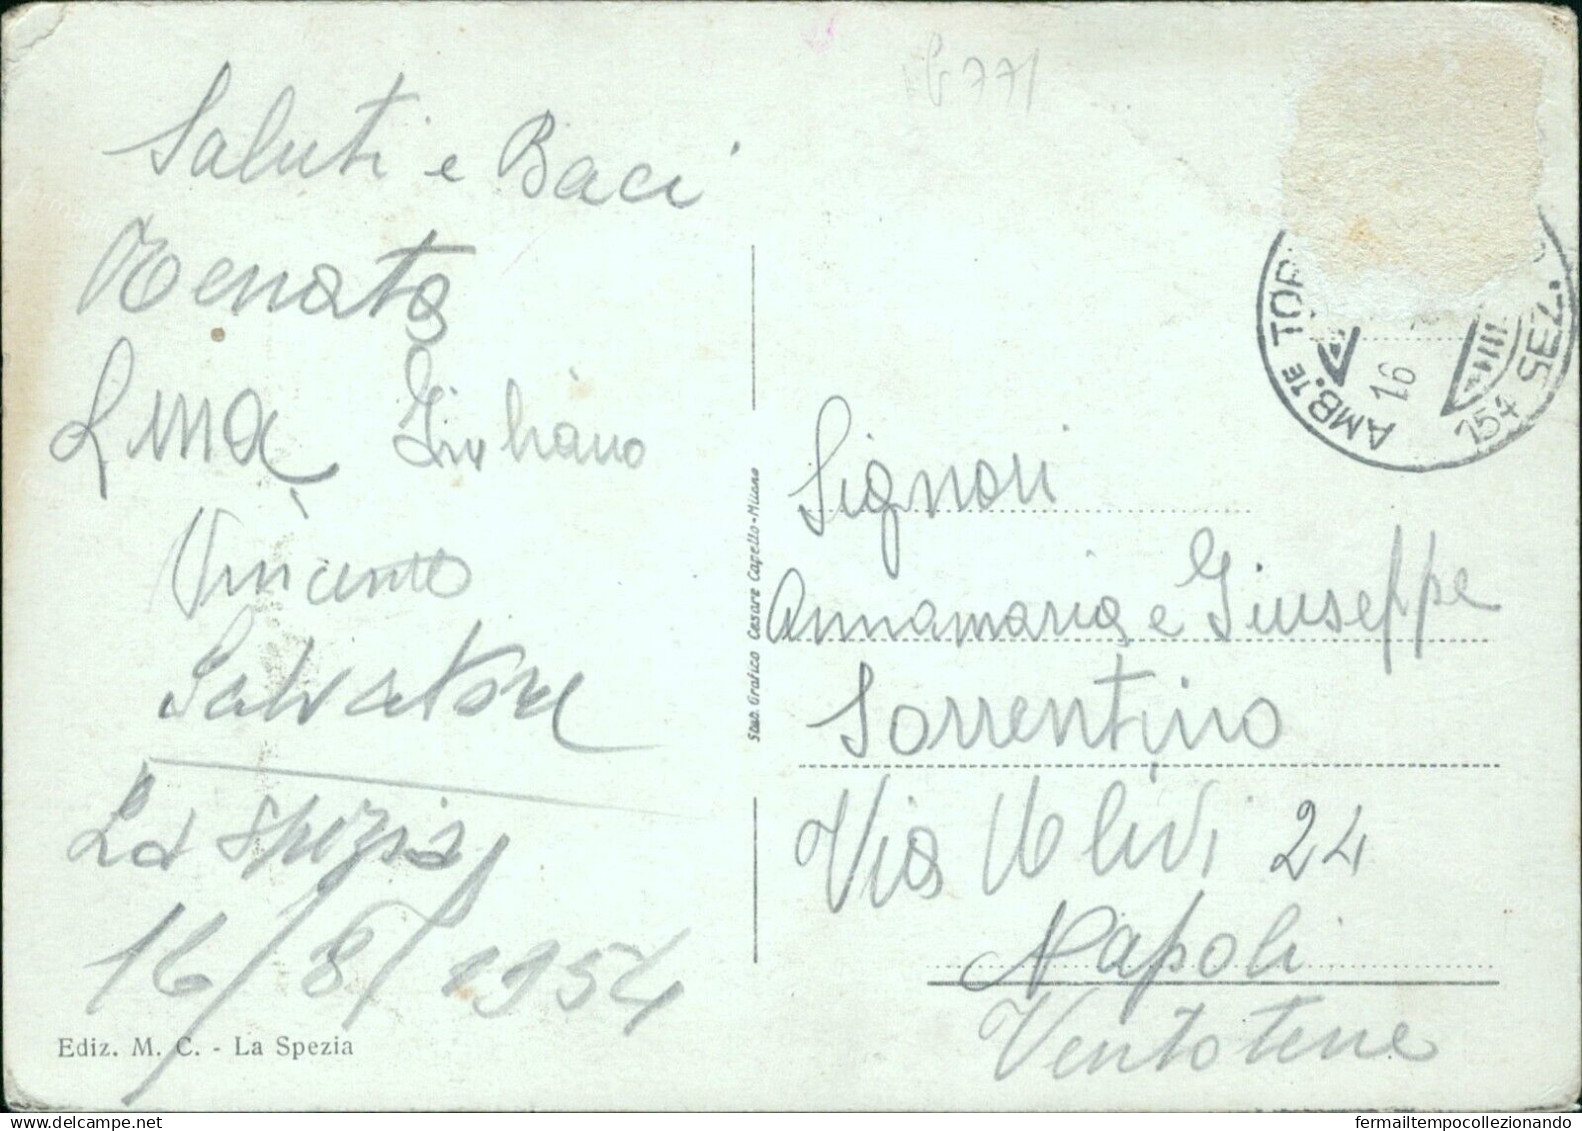 b 771
Saluti e Baci
Renata
Lina Giuliano
Vincenzo
Salvatore
La Spezia
16/8/1954
Ediz. M. C. - La Spezia
Stab. Grafico Cesare Capello - Milano
AMB.TE TOR
16
154 SEZ.
Signori
Annamaria e Giuseppe
Sorrentino
Via Ulivi 24
Napoli
Ventotene
fermailtempocollezionando